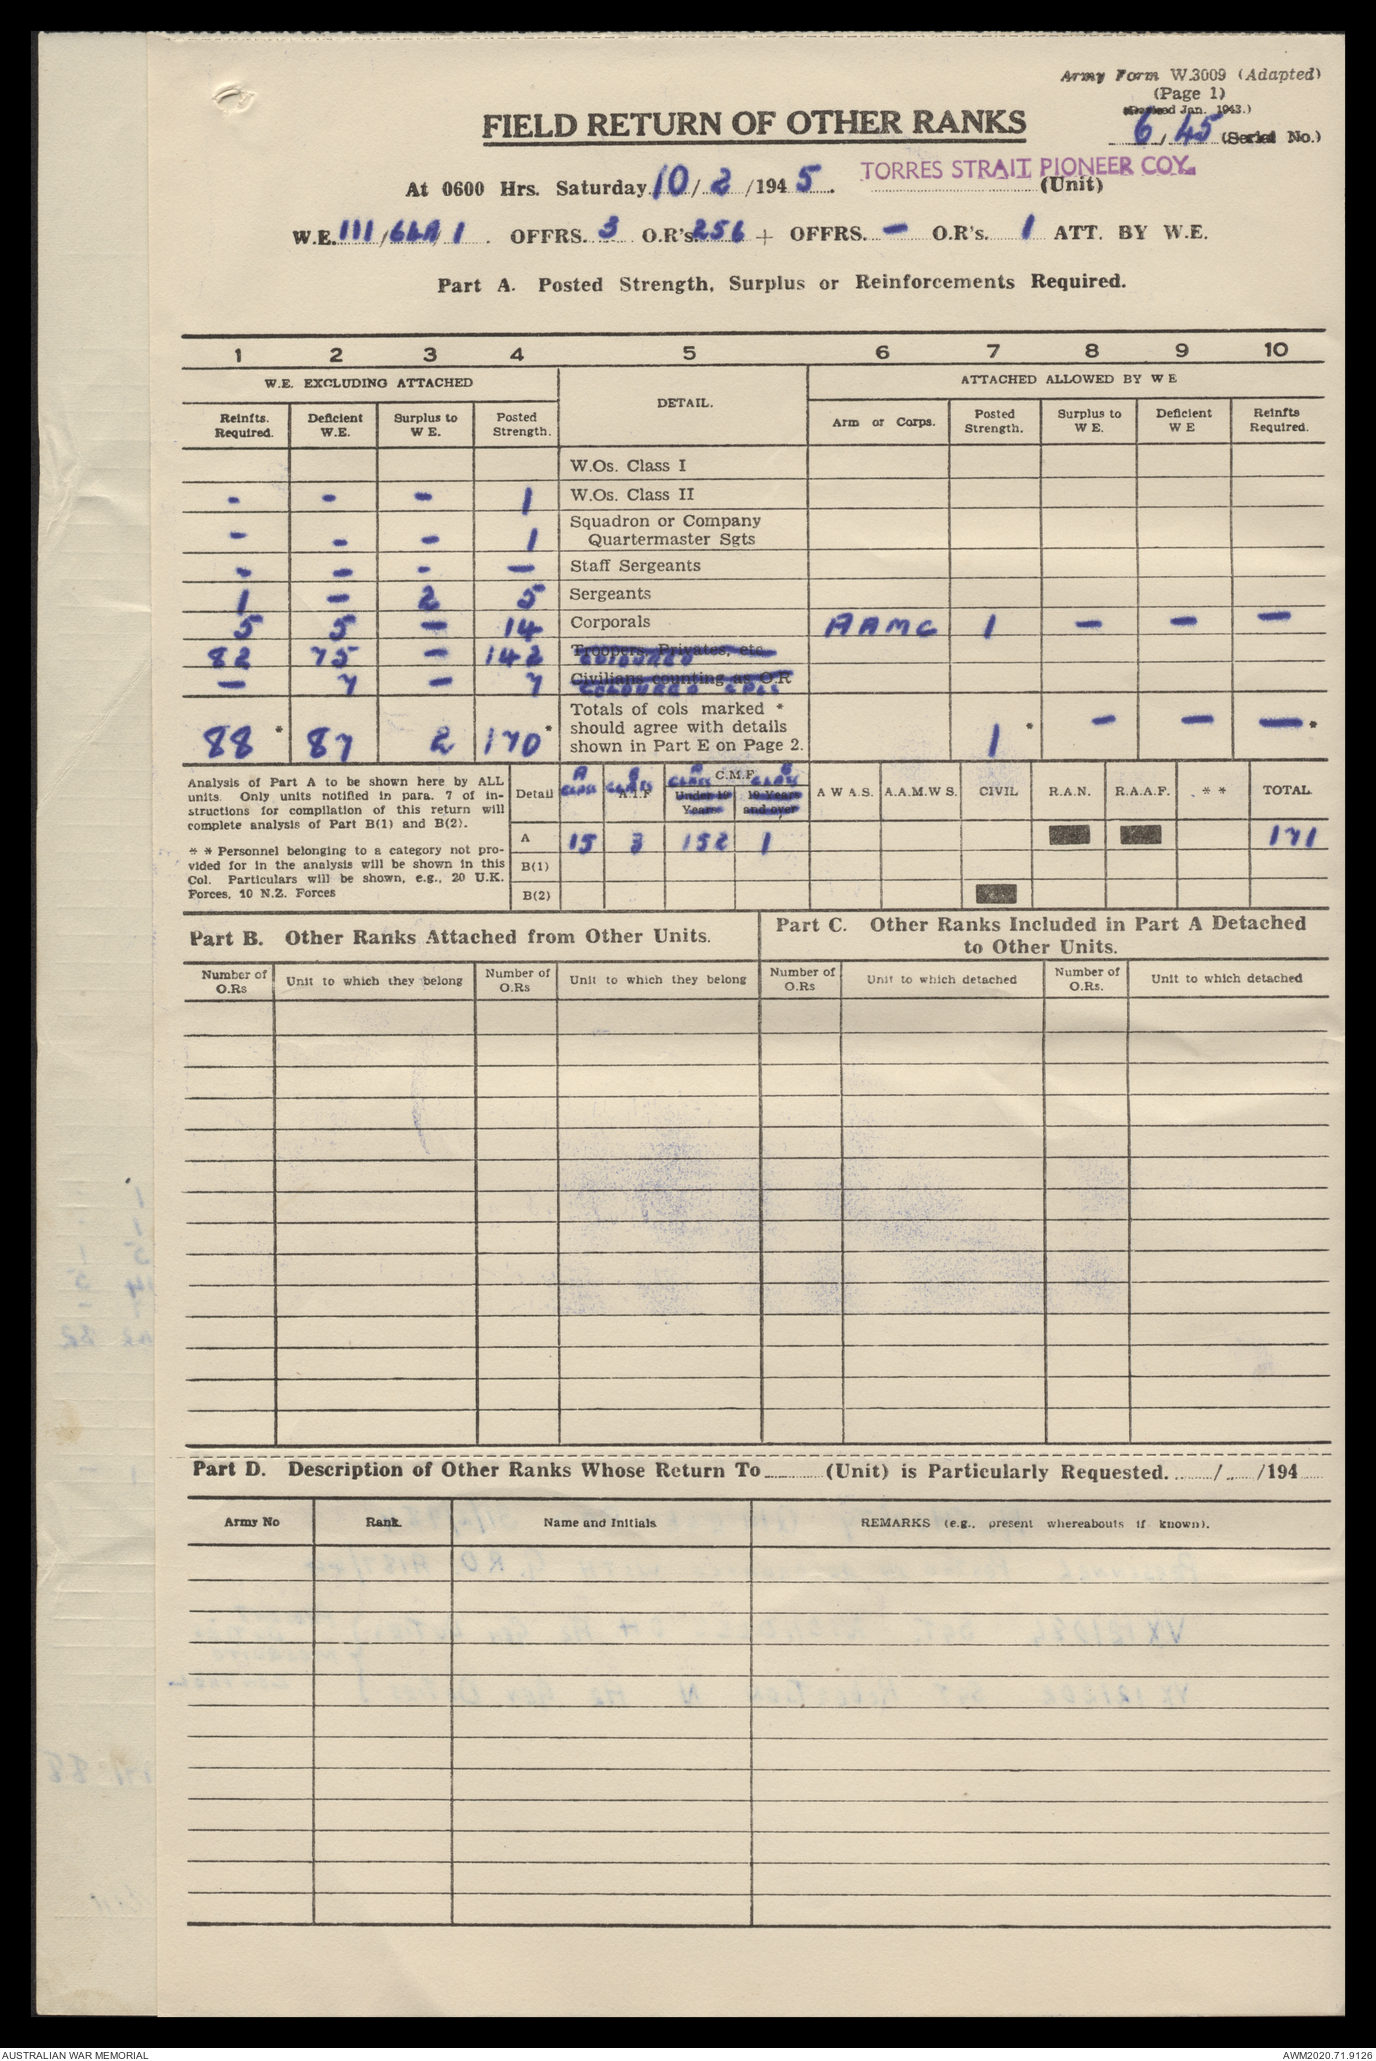 Army Form W.3009 (Adapted)
(Page 1)
Jan. 1943.)
6/45 (Serial No.)
FIELD RETURN OF OTHER RANKS
At 0600 Hrs. Saturday 10/2/1945. TORRES STRAIT PIONEER COY. (Unit)
W.E. 111/66A/1. OFFRS. 3 O.R's. 256 + OFFRS. - O.R's. 1 ATT. BY W.E.
Part A. Posted Strength, Surplus or Reinforcements Required.
1 2 3 4 5 6 7 8 9 10
W.E. EXCLUDING ATTACHED DETAIL. ATTACHED ALLOWED BY W E
Reinfts. Required. Deficient W.E. Surplus to W E. Posted Strength. Arm or Corps. Posted Strength. Surplus to W E. Deficient W E Reinfts Required.
W.Os. Class I
- - - 1 W.Os. Class II
- - - 1 Squadron or Company Quartermaster Sgts
- - - - Staff Sergeants
1 - 2 5 Sergeants
5 5 - 14 Corporals AAMC 1 - - -
82 75 - 142 Troopers, Privates, etc. COLOURED
- 7 - 7 Civilians counting as O.R COLOURED CPLS
88 * 87 2 170 * Totals of cols marked * should agree with details shown in Part E on Page 2. 1 * - - - *
Analysis of Part A to be shown here by ALL
units. Only units notified in para. 7 of in-
structions for compilation of this return will
complete analysis of Part B(1) and B(2).
* * Personnel belonging to a category not pro-
vided for in the analysis will be shown in this
Col. Particulars will be shown, e.g., 20 U.K.
Forces, 10 N.Z. Forces
Detail A CLASS B CLASS A.I.F C.M.F. A CLASS Under 19 Years B CLASS 19 Years and over A W A.S. A.A.M.W S. CIVIL R.A.N. R.A.A.F. * * TOTAL
A 15 3 152 1 171
B(1)
B(2)
Part B. Other Ranks Attached from Other Units.
Part C. Other Ranks Included in Part A Detached
to Other Units.
Number of O.Rs Unit to which they belong Number of O.Rs Unit to which they belong Number of O.Rs Unit to which detached Number of O.Rs. Unit to which detached
Part D. Description of Other Ranks Whose Return To (Unit) is Particularly Requested. / /194
Army No Rank. Name and Initials REMARKS (e.g., present whereabouts if known).
AUSTRALIAN WAR MEMORIAL AWM2020.71.9126